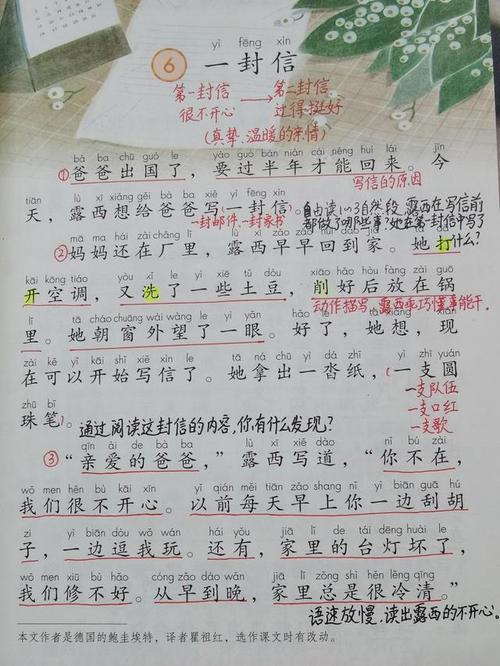 yì fēng xìn
6 一封信
第一封信 → 第二封信
很不开心 过得挺好
(真挚、温暖的亲情)
bà ba chū guó le yào guò bàn nián cái néng huí lái jīn
①爸爸出国了，要过半年才能回来。今
写信的原因
tiān lù xī xiǎng gěi bà ba xiě yì fēng xìn
天，露西想给爸爸写一封信。
一封邮件 一封家书
自由读1~3自然段，露西在写信前
都做了哪些事？她在第一封信中写了
什么？
mā ma hái zài chǎng lǐ lù xī zǎo zǎo huí dào jiā tā dǎ
②妈妈还在厂里，露西早早回到家。她打
kāi kōng tiáo yòu xǐ le yì xiē tǔ dòu xiāo hǎo hòu fàng zài guō
开空调，又洗了一些土豆，削好后放在锅
动作描写 露西乖巧懂事能干
lǐ tā cháo chuāng wài wàng le yì yǎn hǎo le tā xiǎng xiàn
里。她朝窗外望了一眼。好了，她想，现
zài kě yǐ kāi shǐ xiě xìn le tā ná chū yì dá zhǐ yì zhī yuán
在可以开始写信了。她拿出一沓纸，一支圆
一支队伍
一支口红
一支歌
zhū bǐ
珠笔。
通过阅读这封信的内容，你有什么发现？
qīn ài de bà ba lù xī xiě dào nǐ bú zài
③“亲爱的爸爸，”露西写道，“你不在，
wǒ men hěn bù kāi xīn yǐ qián měi tiān zǎo shang nǐ yì biān guā hú
我们很不开心。以前每天早上你一边刮胡
zi yì biān dòu wǒ wán hái yǒu jiā lǐ de tái dēng huài le
子，一边逗我玩。还有，家里的台灯坏了，
wǒ men xiū bù hǎo cóng zǎo dào wǎn jiā lǐ zǒng shì hěn lěng qīng
我们修不好。从早到晚，家里总是很冷清。”
语速放慢，读出露西的不开心。
本文作者是德国的鲍圭埃特，译者瞿祖红，选作课文时有改动。